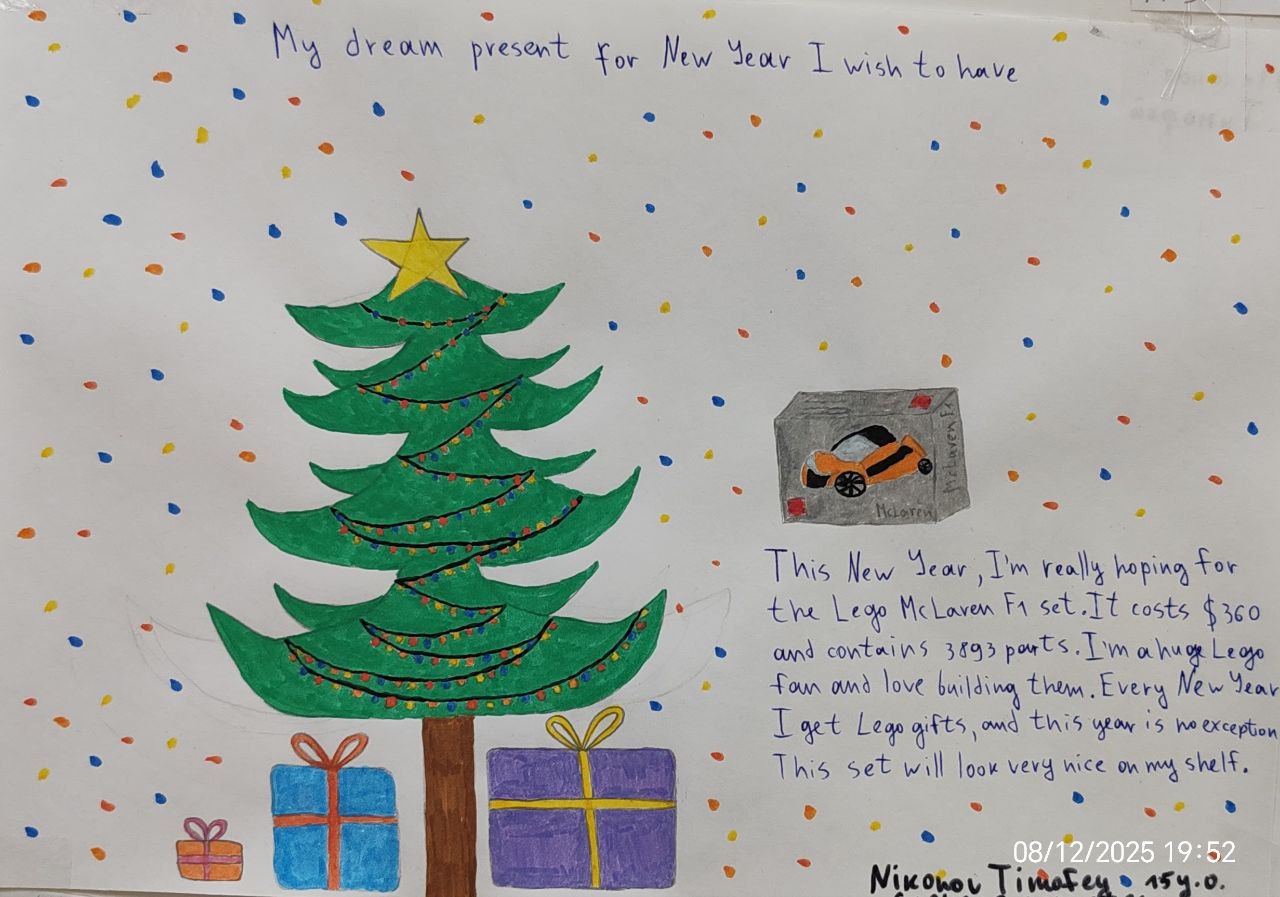 My dream present for New Year I wish to have
McLaren F1
McLaren
This New Year, I'm really hoping for
the Lego McLaren F1 set. It costs $360
and contains 3893 parts. I'm a huge Lego
fan and love building them. Every New Year
I get Lego gifts, and this year is no exception
This set will look very nice on my shelf.
08/12/2025 19:52
Nikonov Timofey 15 y.o.